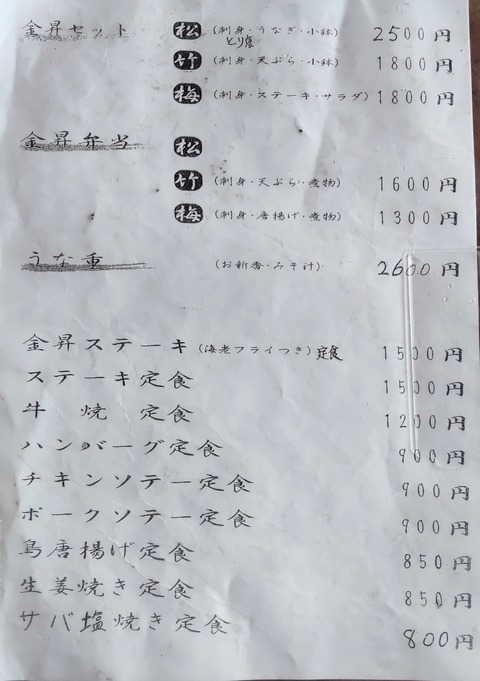 金昇セット 松 (刺身・うなぎ・小鉢) 2500円
とり唐
竹 (刺身・天ぷら・小鉢) 1800円
梅 (刺身・ステーキ・サラダ) 1800円
金昇弁当 松
竹 (刺身・天ぷら・煮物) 1600円
梅 (刺身・唐揚げ・煮物) 1300円
うな重 (お新香・みそ汁) 2600円
金昇ステーキ (海老フライつき) 定食 1500円
ステーキ定食 1500円
牛焼定食 1200円
ハンバーグ定食 900円
チキンソテー定食 900円
ポークソテー定食 900円
鳥唐揚げ定食 850円
生姜焼き定食 850円
サバ塩焼き定食 800円